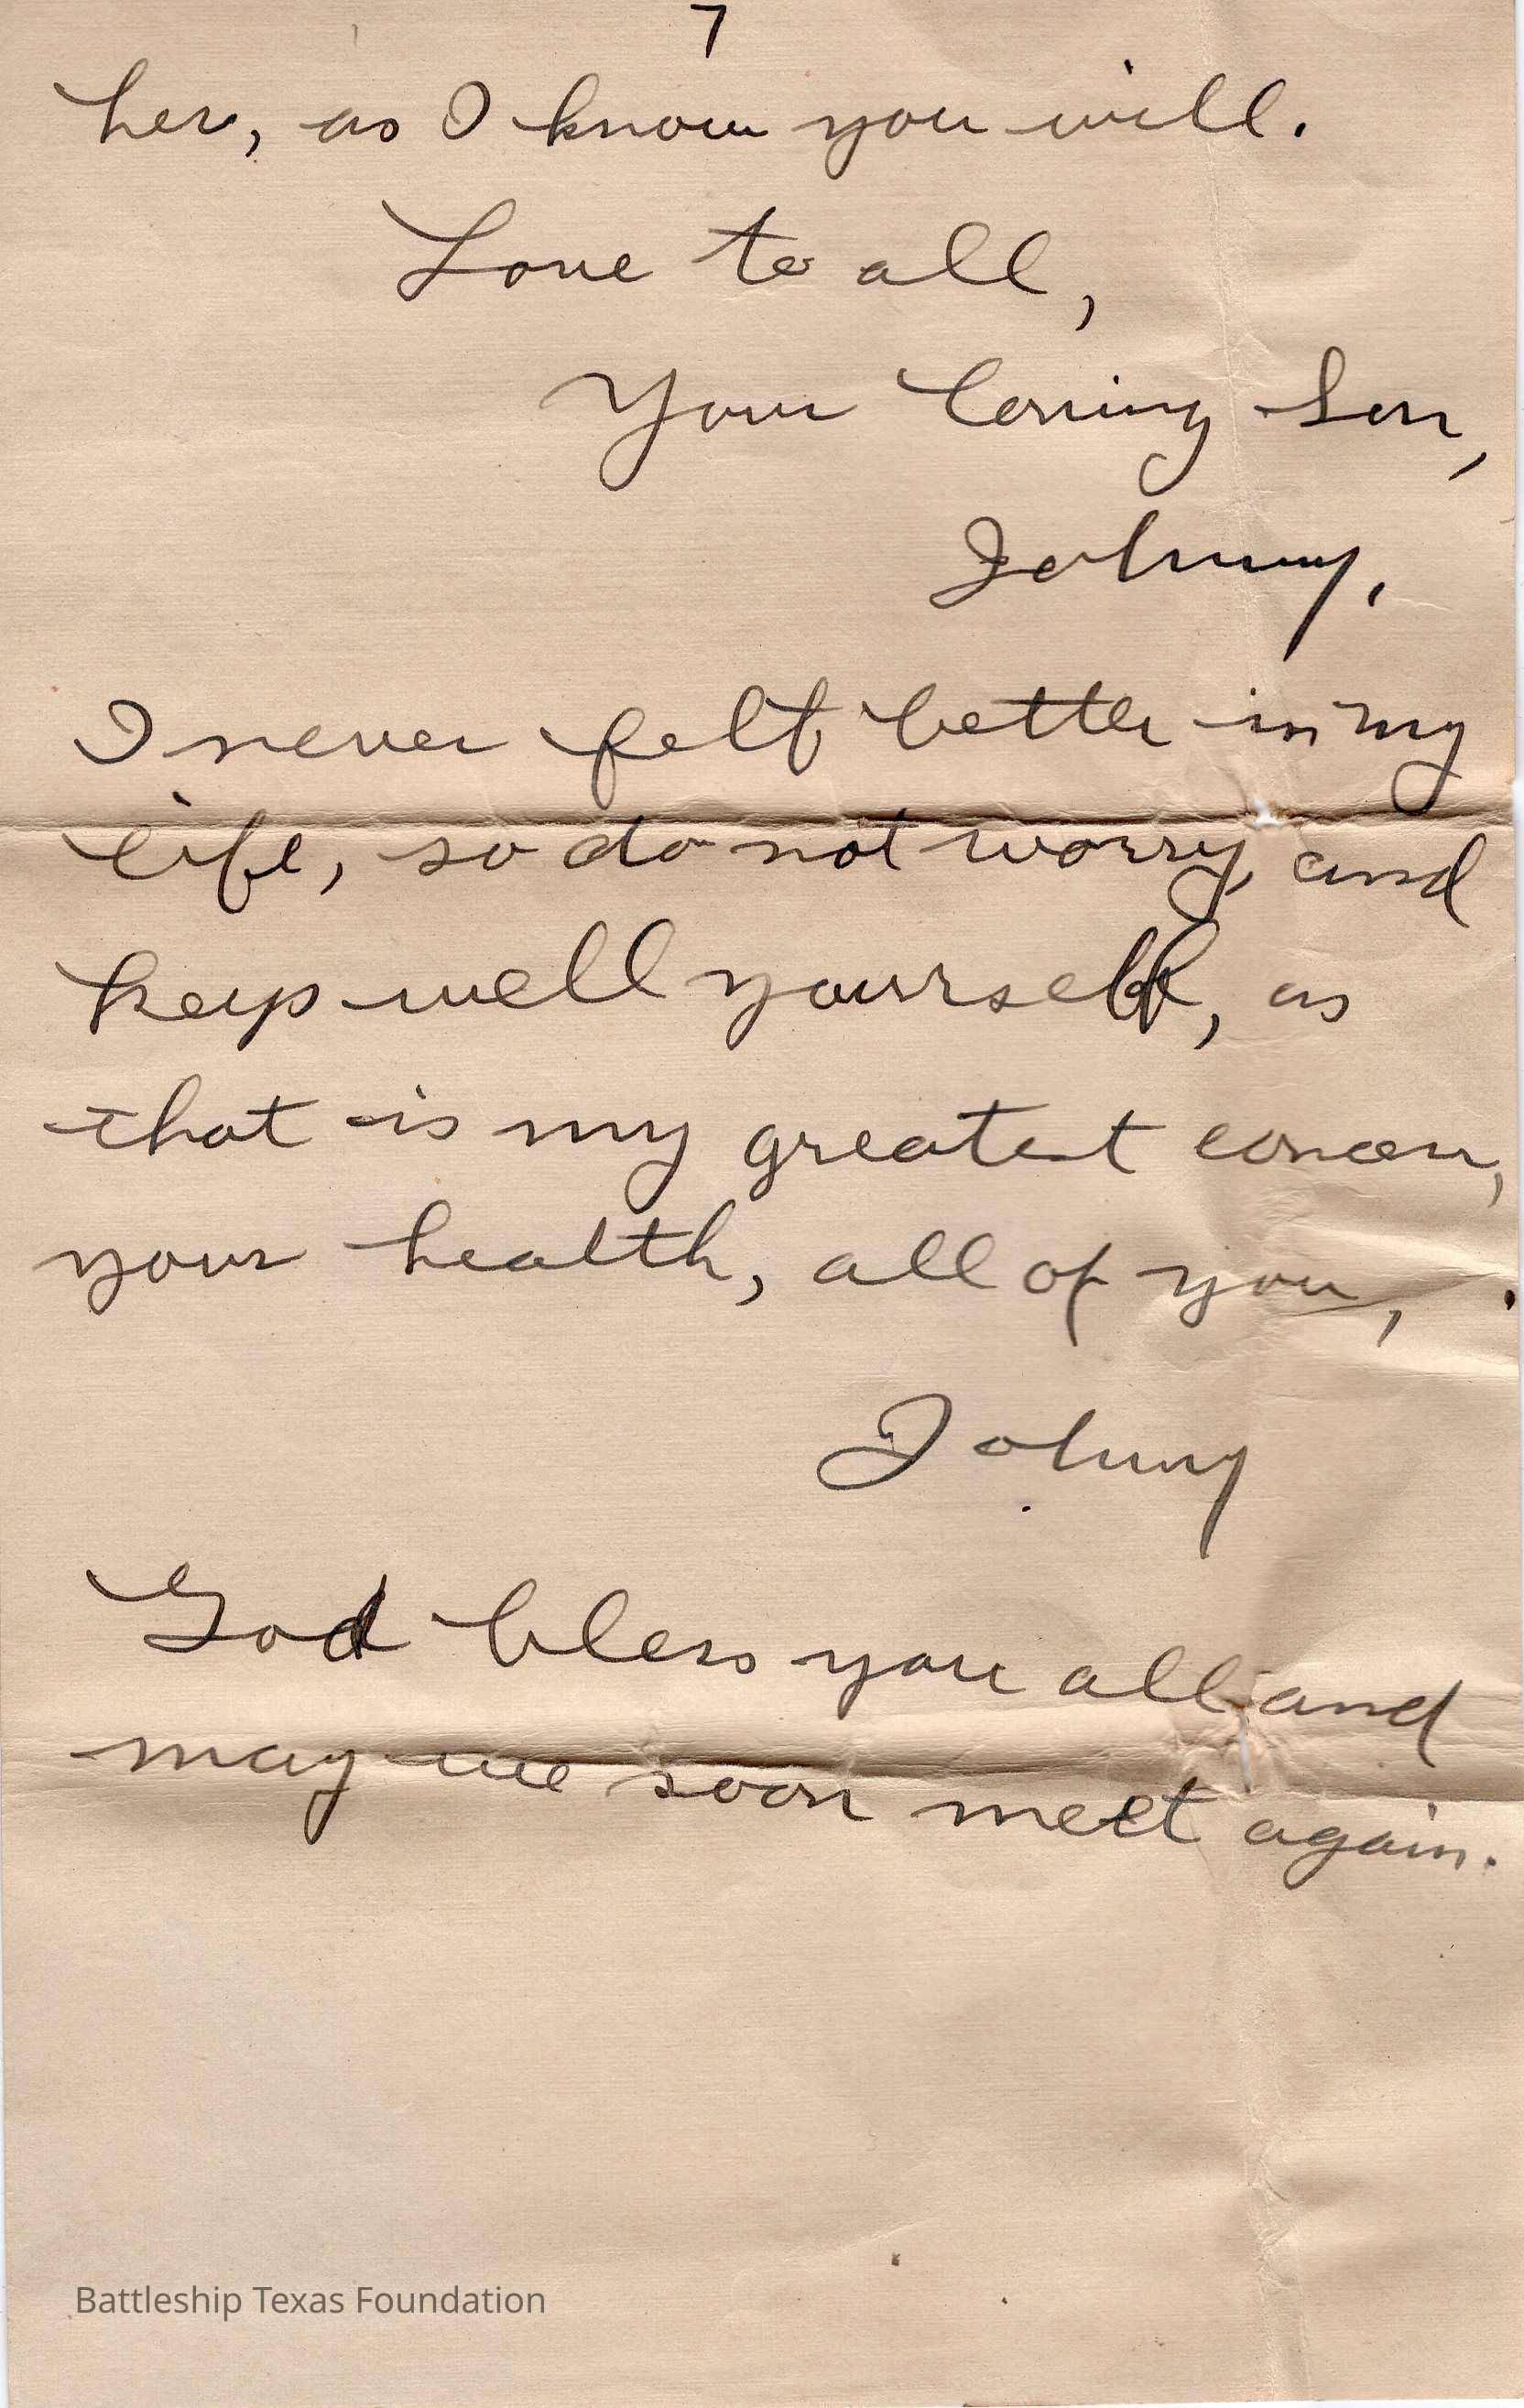 7
her, as I know you will.
Love to all,
Your loving Son,
Johnny.
I never felt better in my
life, so do not worry, and
keep well yourself, as
that is my greatest concern,
your health, all of you,
Johnny
God bless you all and
may we soon meet again.
Battleship Texas Foundation